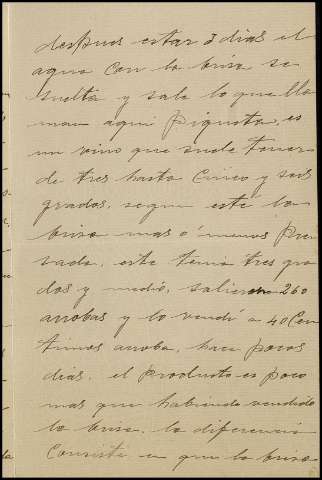 despues estar 3 dias el
agua con la brisa se
suelta y sale lo que lla
man aqui piqueta, es
un vino que suele tener
de tres hasta cinco y seis
grados, segun esté la
brisa mas o menos pren
sada, este tenia tres gra
dos y medio, salieron 260
arrobas y lo vendi a 40 Cen
timos arroba, hace pocos
dias. el producto es poco
mas que habiendo vendido
la brisa, la diferencia
Consiste en que la brisa